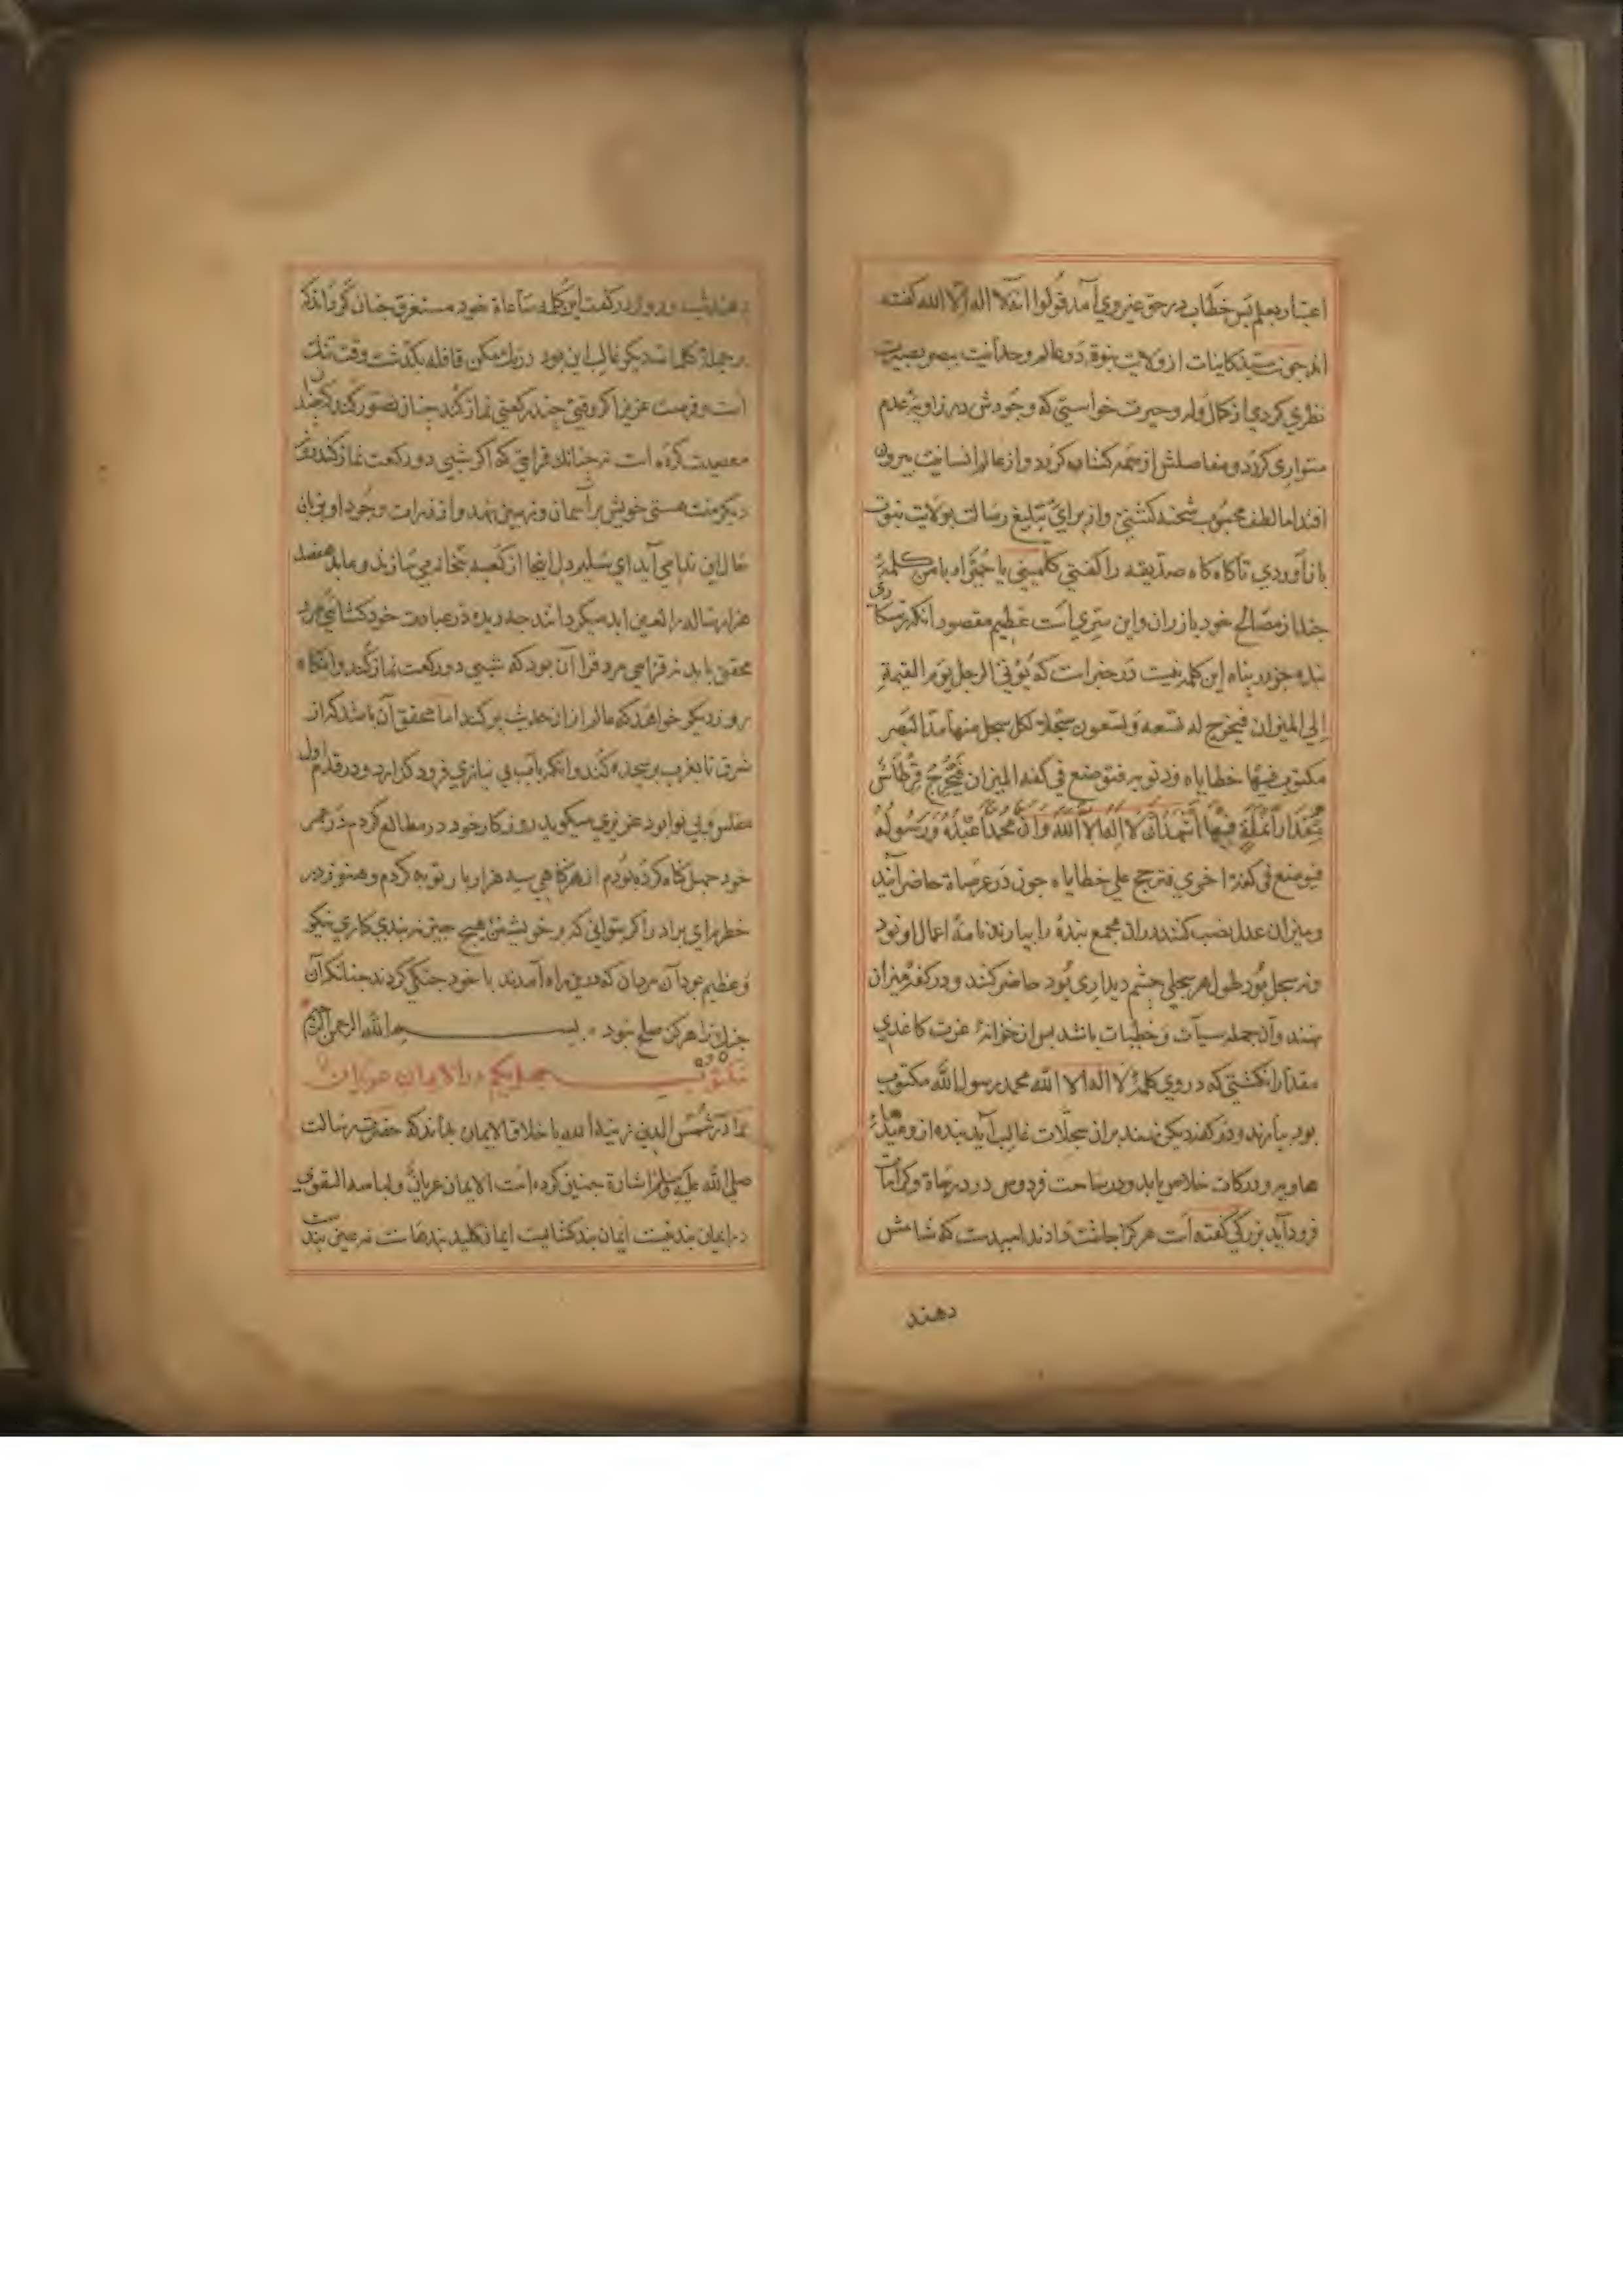 اعتبار بعلم پس خطاب در حق غیر وی آمد قولوا لا اله الا الله گفته
اند چون سید کاینات از ولایت نبوة در عالم وحدانیت ببصر بصیرت
نظری کردی از کمال وله و حیرت خواستی که وجودش در زاویه عدم
متواری گردد و مفاصلش از همه کشاده گردد و از عالم انسانیت بیرون
افتد اما لطف محبوب شحنه گشتی و از برای تبلیغ رسالت بولایت نبوت
باز آوردی تا گاه گاه صدیقه را گفتی کلمینی یا حمیرا و با من کلمهٔ
چند از مصالح خود باز ران و این سری است عظیم مقصود آنکه رستکاری
بنده جز در پناه این کلمه نیست در خبر است که یؤتی الرجل یوم القیمة
الی المیزان فیخرج له تسعه و تسعون سجلا لکل سجل منها مد البصر
مکتوب فیها خطایاه و ذنوبه فتوضع فی کفه المیزان فیخرج قرطاس
بمقدار انملة فیها اشهد ان لا اله الا الله و ان محمدا عبده و رسوله
فیوضع فی کفة اخری فترجح علی خطایاه چون در عرصاة حاضر آیند
و میزان عدل نصب کنند در ان مجمع بنده را بیارند نامه اعمال او نود
و نه سجل بود طول هر سجلی چشم دیداری بود حاضر کنند و در کفه میزان
نهند و آن جمله سیآت و خطیات باشد پس از خزانهٔ عزت کاغذی
مقدار انگشتی که در وی کلمهٔ لا اله الا الله محمد رسول الله مکتوب
بود بیارند و در کفه دیگر نهند بر ان سجلات غالب آید بنده از
هاویه و درکات خلاص یابد و در ساحت فردوس در درجاة و کرامات
فرود آید بزرگی گفته است هر کرا چاشت دادند امیدست که شامش
دهند
دهند شب و روز در گفت این کلمه ساعاة خود مستغرق چنان گردانند که
بر جملهٔ کلمات دیگر غالب این بود درنگ مکن قافله بگذشت وقت تنگ
است و فرصت عزیز اگر وقتی چند رکعتی نماز کند چنان تصور کند که چند
معصیت کرده است نه چنانک قرایی که اگر شبی دو رکعت نماز کند روز
دیگر منت هستی خویش بر آسمان و زمین نهد و از ذرات وجود او بزبان
حال این ندا می آید ای سلیم دل اینجا از کعبه بتخانه می سازند و عابد هفصد
هزار ساله را لعین ابد میگردانند چه دیده در عبادت خود گشائی مرد
محقق باید نه قرایی مرد قرا آن بود که شبی دو رکعت نماز کند و آنگاه
روز دیگر خواهد که عالم از ان حدیث پر کند اما محقق آن باشد که از
شرق تا بغرب پر سجده کند و آنگه باب بی نیازی فرود گذارد و در قدم اول
مفلس و بی نوا بود عزیزی میگوید روزگار خود در مطالع کردم در عمر
خود چهل گناه کرده بودم از هر گناهی سیصد هزار بار توبه کردم و هنوز در
خطرم ای برادر اگر بتوانی که بر خویشتن هیچ چیز نه بندی کاری نیکو
و عظیم بود آن مردان که درین راه آمدند با خود جنگی کردند چنانکه آن
جنگ را هرگز صلح نبود بسم الله الرحمن الرحیم
مکتوب چهل یکم در الایمان عریان
برادرم شمس الدین زینه الله باخلاق الایمان بداند که حضرت رسالت
صلی الله علیه وسلم اشارة چنین کرده است الایمان عریان و لباسه التقوی
در ایمان بند نیست ایمان بند گشایست ایمان کلید بندهاست نه عین بند